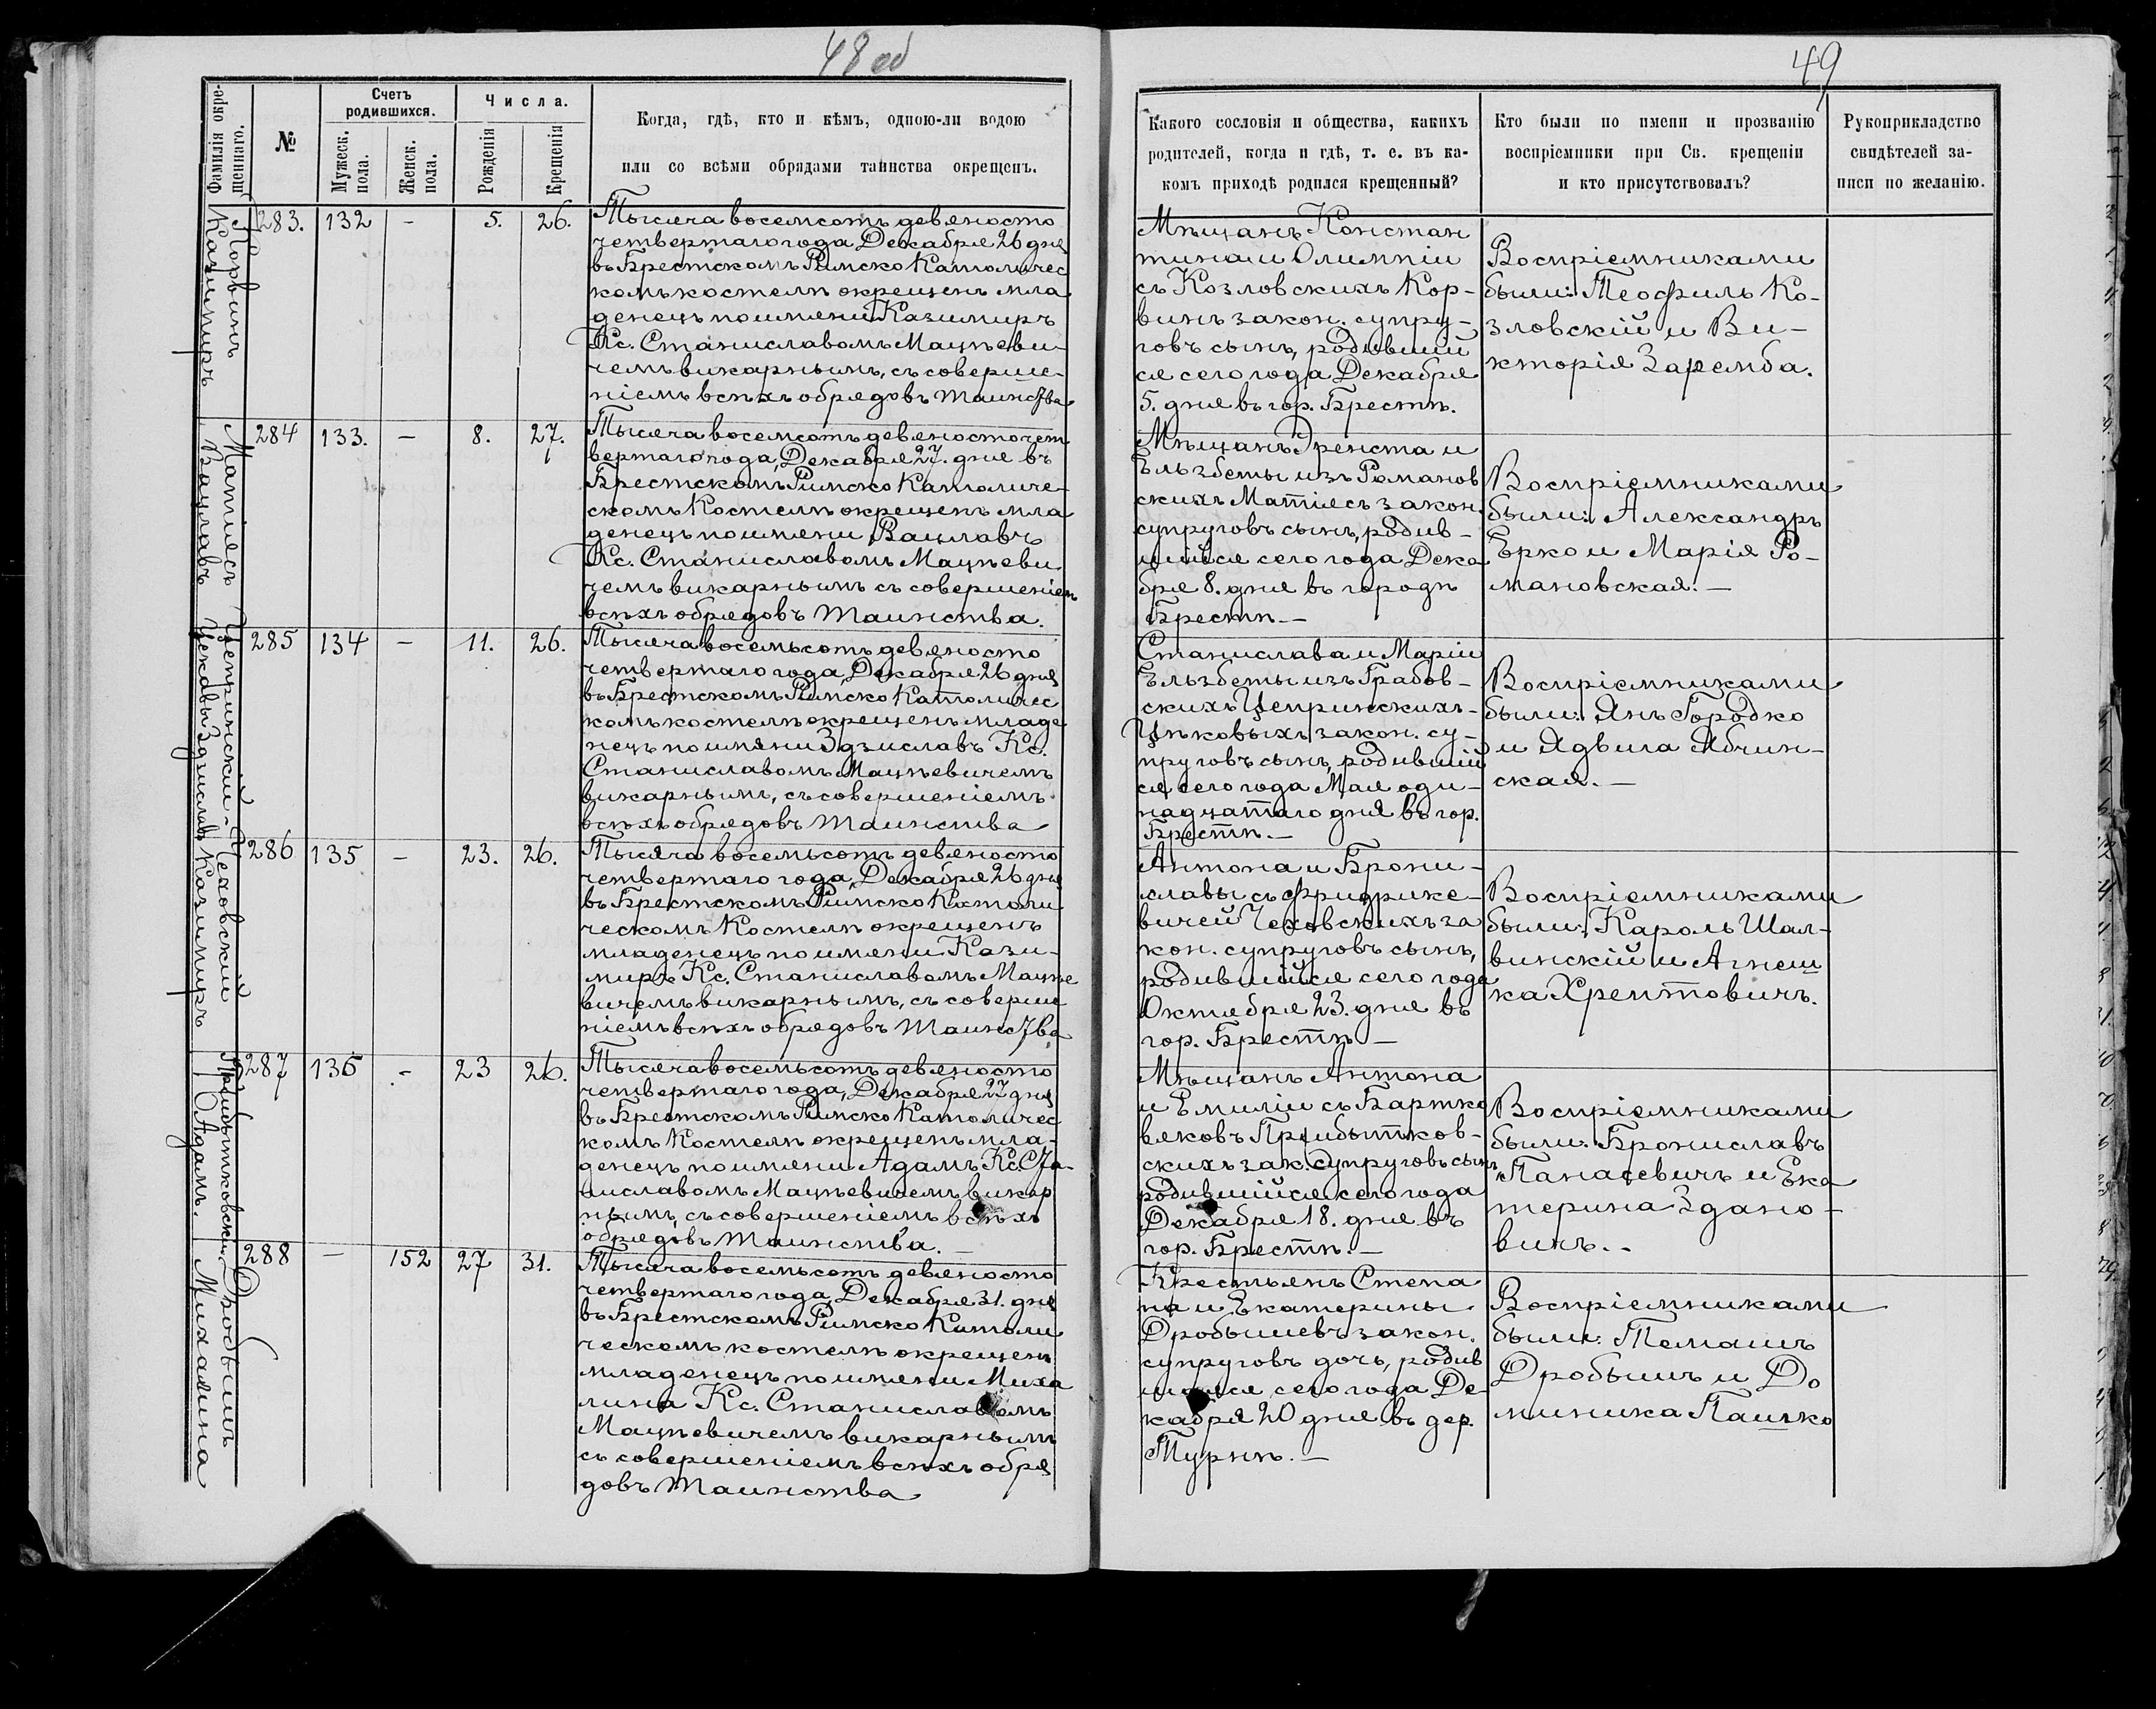 48 об
Фамилія окре-
щеннаго.
№
Счетъ
родившихся.
Мужеск.
пола.
Женск.
пола.
Числа.
Рожденія
Крещенія
Когда, гдѣ, кто и кѣмъ, одною-ли водою
или со всѣми обрядами таинства окрещенъ.
Корвинъ
Казимиръ
283. 132 - 5. 26.
Тысяча восемсотъ девяносто
четвертаго года, Декабря 26 дня
въ Брестскомъ Римско Католичес
комъ костелѣ окрещенъ мла
денецъ по имени Казимиръ
Кс. Станиславомъ Мацѣеви-
чемъ викарнымъ, съ соверше-
ніемъ всѣхъ обрядовъ Таинства
Матіясъ
Вацлавъ
284 133. - 8. 27.
Тысяча восемсотъ девяносто чет
вертаго года, Декабря 27. дня въ
Брестскомъ Римско Католиче-
скомъ Костелѣ окрещенъ мла
денецъ по имени Вацлавъ
Кс. Станиславомъ Мацѣеви
чемъ викарнымъ съ совершеніем
всѣхъ обрядовъ Таинства.
Цепринскій-
Цековы Здзиславъ
285 134 - 11. 26.
Тысяча восемьсотъ девяносто
четвертаго года, Декабря 26 дня
въ Брестскомъ Римско Католичес
комъ костелѣ окрещенъ младе
нецъ по имени Здзиславъ Кс.
Станиславомъ Мацѣевичемъ
викарнымъ, съ совершеніемъ
всѣхъ обрядовъ Таинства
Чеховскій
Казимиръ
286 135 - 23. 26.
Тысяча восемьсотъ девяносто
четвертаго года, Декабря 26 дня
въ Брестскомъ Римско Католи
ческомъ Костелѣ окрещенъ
младенецъ по имени Кази-
миръ Кс. Станиславомъ Мацѣе
вичемъ викарнымъ, съ соверше
ніемъ всѣхъ обрядовъ Таинства
Прибытковскій
Адамъ.
287 136 - 23 26.
Тысяча восемьсотъ девяносто
четвертаго года, Декабря 27 дня
въ Брестскомъ Римско Католичес
комъ Костелѣ окрещенъ мла-
денецъ по имени Адамъ Кс. Ста-
ниславомъ Мацѣевичемъ викар
нымъ, съ совершеніемъ всѣхъ
обрядовъ Таинства. -
Дробышъ
Михалина
288 - 152 27 31.
Тысяча восемьсотъ девяносто
четвертаго года, Декабря 31. дня
въ Брестскомъ Римско Католи
ческомъ костелѣ окрещенъ
младенецъ по имени Миха
лина Кс. Станиславомъ
Мацѣевичемъ викарнымъ
съ совершеніемъ всѣхъ обря
довъ Таинства
49
Какого сословія и общества, какихъ
родителей, когда и гдѣ, т. е. въ ка-
комъ приходѣ родился крещенный?
Кто были по имени и прозванію
воспріемники при Св. крещеніи
и кто присутствовалъ?
Рукоприкладство
свидѣтелей за-
писи по желанію.
Мѣщанъ Констан
тина и Олимпіи
съ Козловскихъ Кор-
винъ закон. супру-
говъ сынъ, родивший
ся сего года Декабря
5. дня въ гор. Брестѣ.
Воспріемниками
были: Теофиль Ко-
зловскій и Ви-
кторія Заремба.
Мѣщанъ Эрнста и
Ельзбеты изъ Романов
скихъ Матіясъ закон.
супруговъ сынъ, родив-
шійся сего года Дека
бря 8. дня въ городѣ
Брестѣ -
Воспріемниками
были: Александръ
Ерко и Марія Ро-
мановская. -
Станислава и Маріи
Ельзбеты изъ Грабов-
скихъ Цепринскихъ-
Цѣковыхъ закон. су-
пруговъ сынъ, родившій
ся сего года Мая оди-
надцатаго дня въ гор.
Брестѣ. -
Воспріемниками
были: Янъ Городко
и Ядвига Ябчин-
ская. -
Антона и Брони-
славы съ Фридрике-
вичей Чеховскихъ за
кон. супруговъ сынъ,
родившійся сего года
Октября 23. дня въ
гор. Брестѣ -
Воспріемниками
были: Кароль Шал-
винскій и Агнеш
ка Хрептовичъ.
Мѣщанъ Антона
и Емиліи съ Бартко
вяковъ Прибытков-
скихъ зак. супруговъ сынъ,
родившійся сего года
Декабря 18. дня въ
гор. Брестѣ. -
Воспріемниками
были: Брониславъ
Панасевичъ и Ека
терина Здано-
вичъ. -
Крестьянъ Степа
на и Екатерины
Дробышевъ закон.
супруговъ дочь, родив
шаяся сего года Де-
кабря 20 дня въ дер.
Турнѣ. -
Воспріемниками
были: Томашъ
Дробышъ и До
миника Пашко